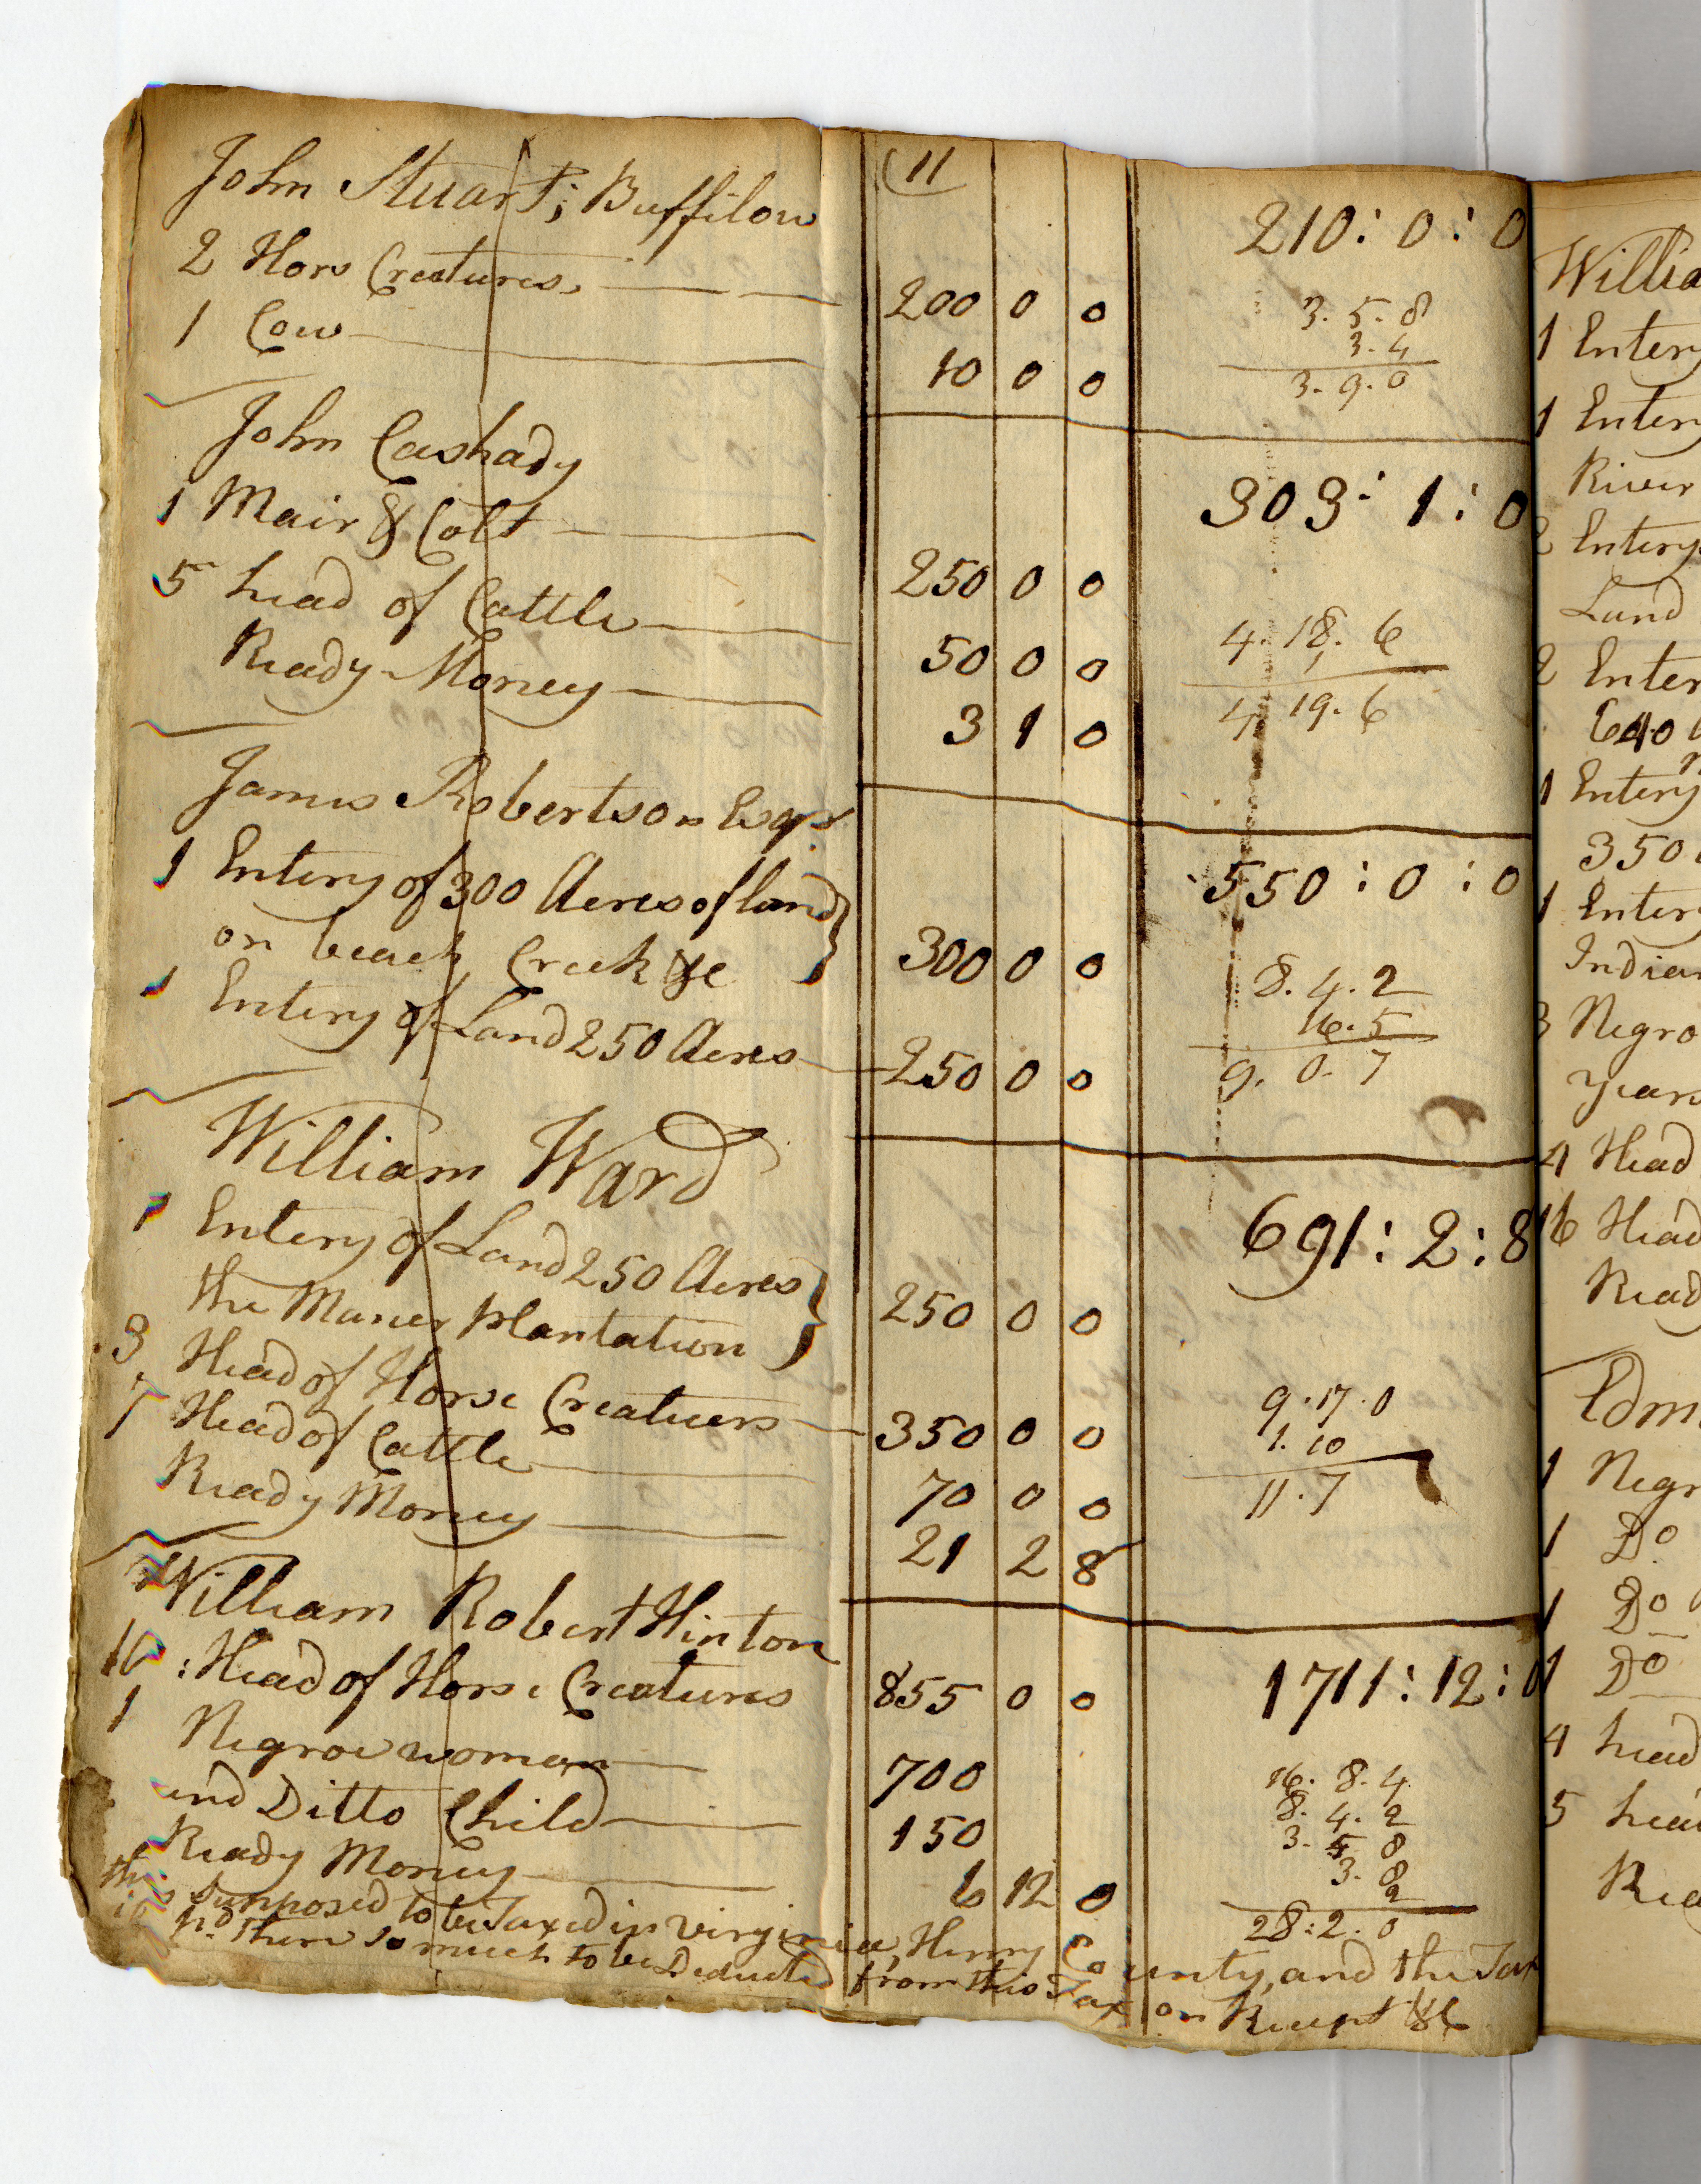 (11
John Stuart; Buffilow 210:0:0
2 Hors Creatures 200 0 0
3.5.8
3.4
1 Cow 10 0 0
3.9.0
John Cashady 303:1:0
1 Mair & Colt 250 0 0
5 head of Cattle 50 0 0
4.18.6
Ready Money 3 1 0
4.19.6
James Robertson Esqr 550:0:0
1 Entery of 300 Acres of land
on beach Creek &c 300 0 0
8.4.2
16.5
1 Entery of Land 250 Acres 250 0 0
9.0.7
William Ward 691:2:8
1 Entery of Land 250 Acres
the Maner plantation 250 0 0
3 Head of Horse Creatuers 350 0 0
9.17.0
1.10
7 Head of Cattle 70 0 0
11.7
Ready Money 21 2 8
William Robert Hinton 1711:12:0
10: Head of Horse Creatures 855 0 0
1 Negroe woman 700
and Ditto Child 150
Ready Money 6 12 0
16.8.4
8.4.2
3.5 8
3.8
2
28:2.0
this supposed to be Taxed in Virginia, Henry County, and the Tax
pd. there so much to be Deducted from this Tax on Recept &c
Willia
1 Entery
1 Entery
River
2 Entery
Land
2 Enter
640
1 Entery
350
1 Entery
Indian
3 Negro
years
4 Head
16 Head
Read
Edm
1 Negr
1 Do
1 Do
1 Do
4 head
5 head
Rea